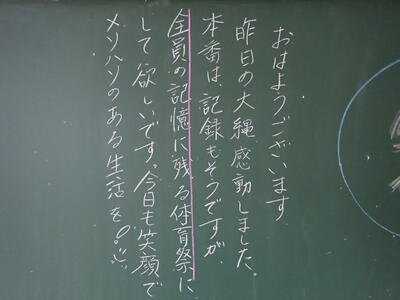 おはようございます
昨日の大縄感動しました。
本番は、記録もそうですが、
全員の記憶に残る体育祭に
して欲しいです。今日も笑顔で
メリハリのある生活を!